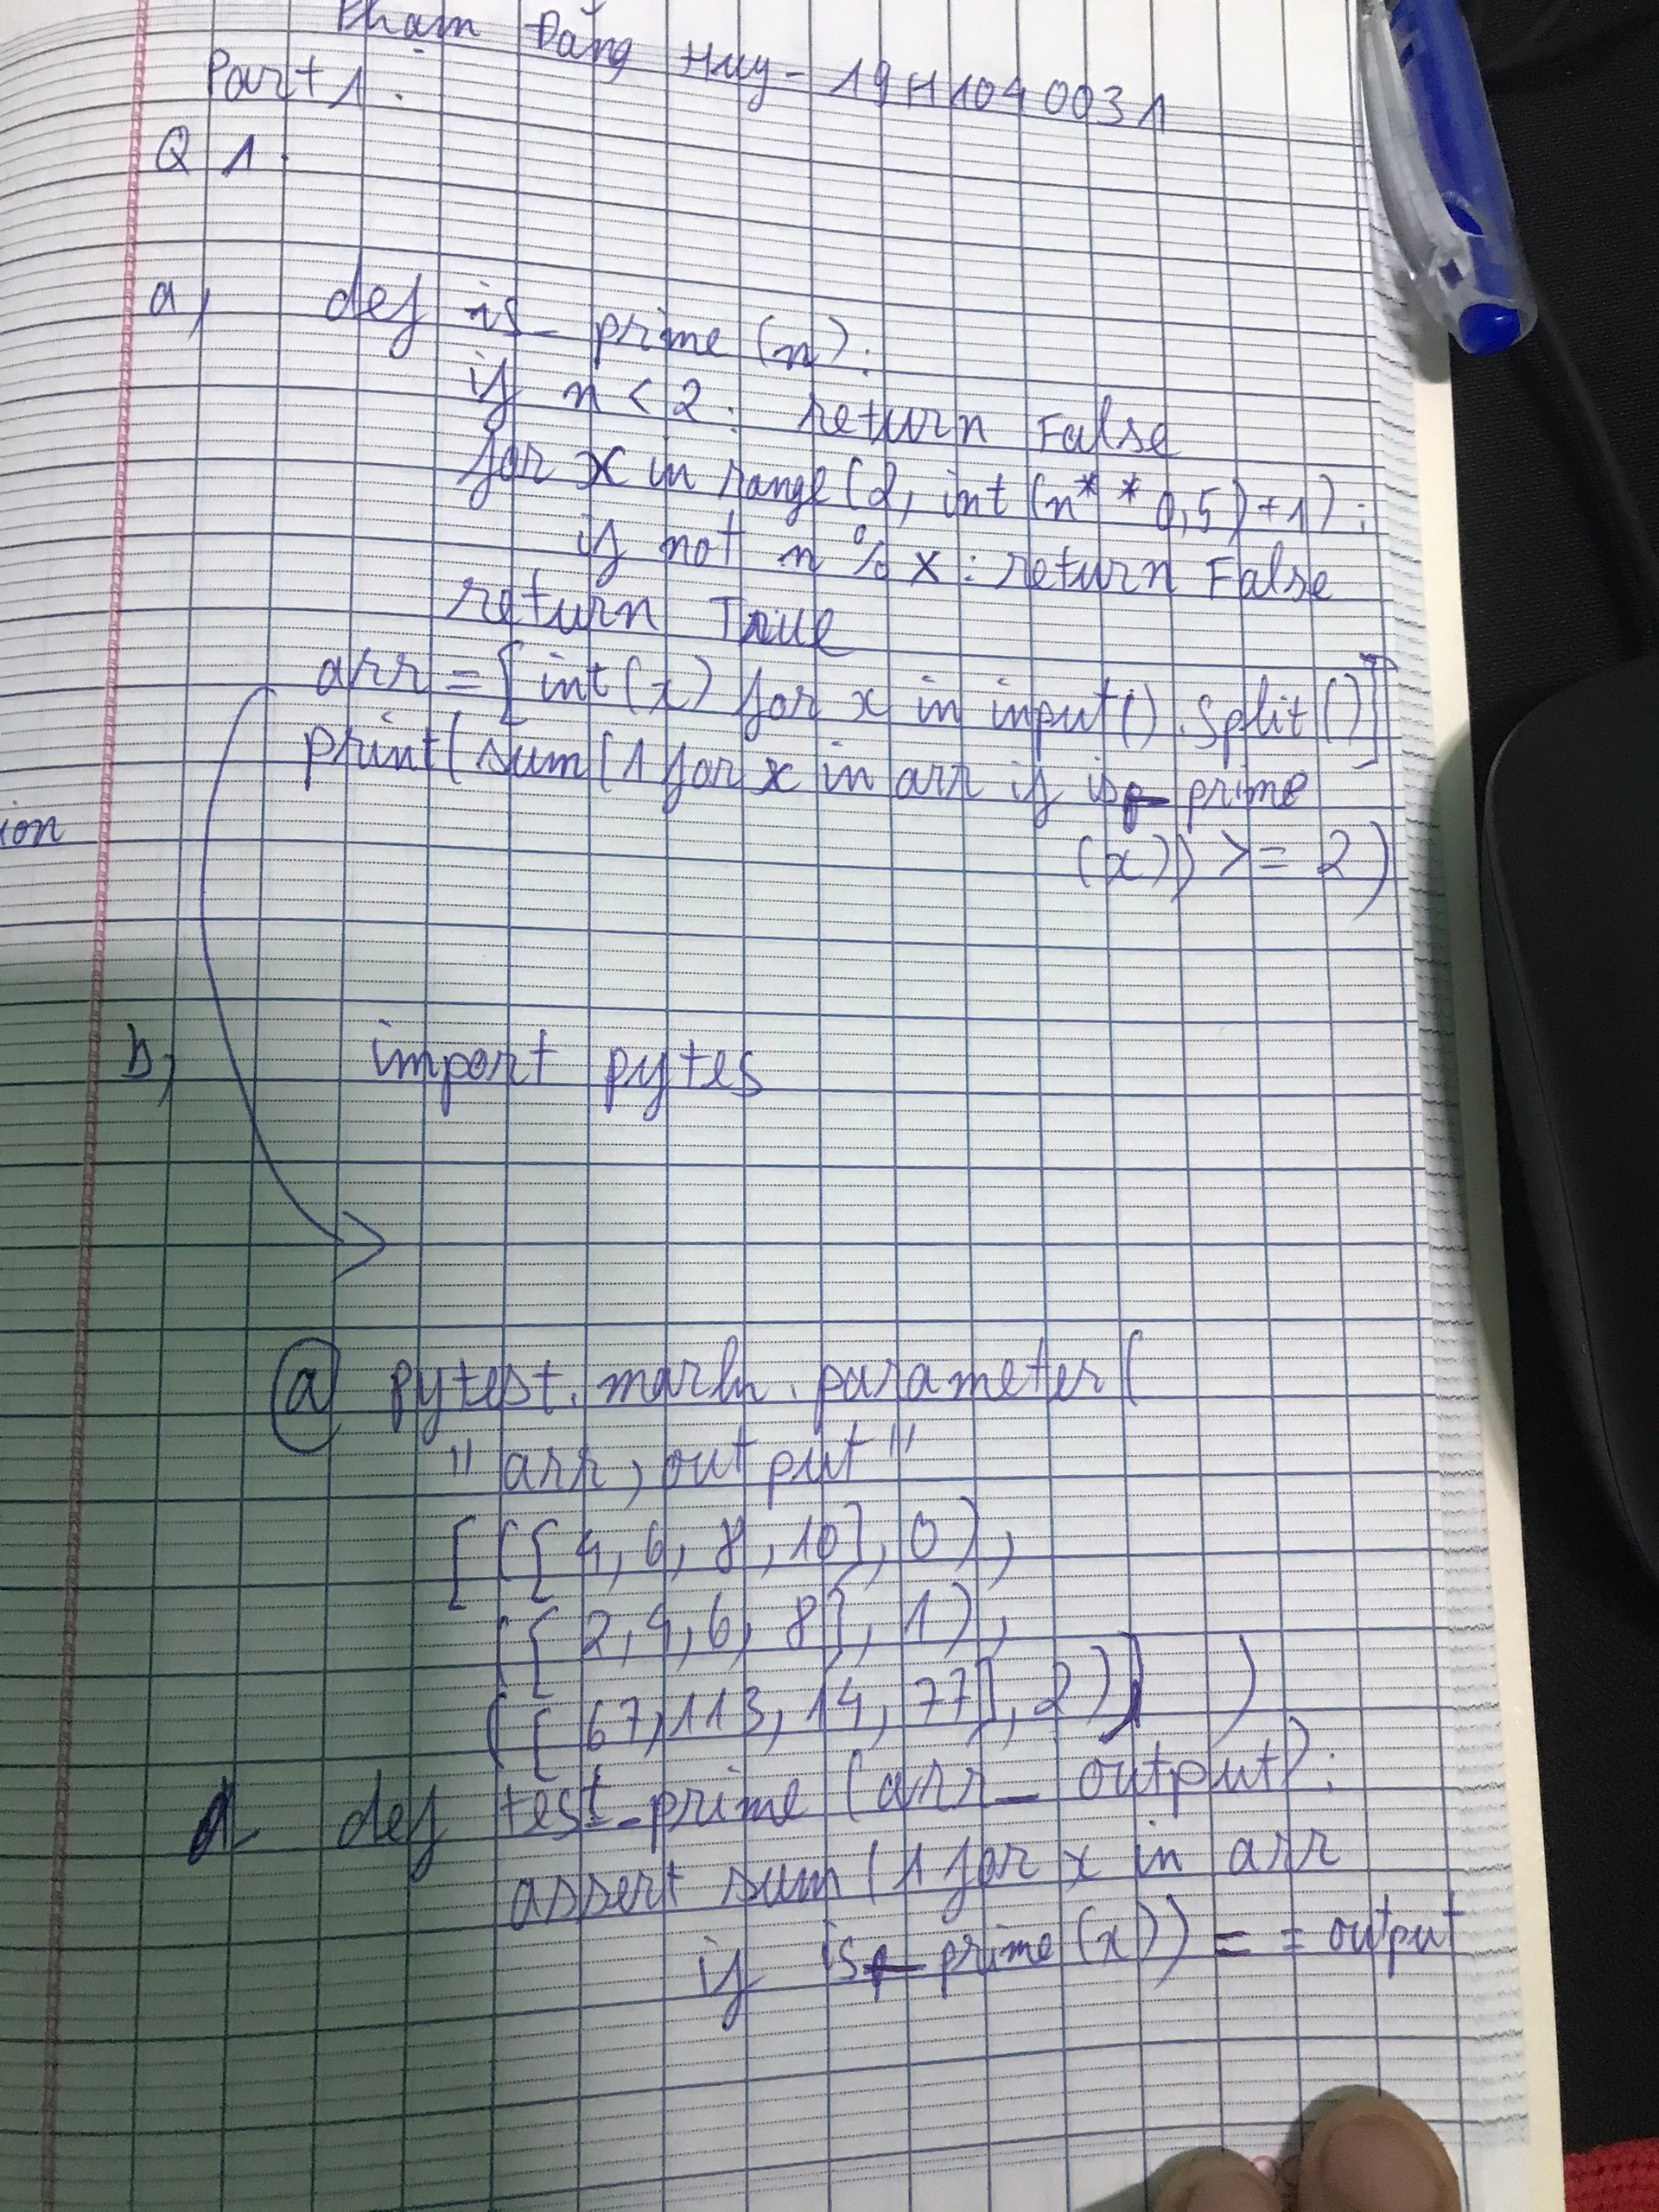 Phạm Đăng Huy - 19H1104 0031
Part 1.
Q 1.
a, def is_prime (n):
if n < 2: return False
for x in range (2, int (n** 0,5) + 1):
if not n % x: return False
return True
arr = [int(x) for x in input().split()]
print(sum(1 for x in arr if is_prime
(x)) >= 2)
ion
b, import pytes
@ pytest. mark. parameter(
"arr, output"
[([4, 6, 8, 10], 0),
([2, 4, 6, 8], 1),
([67, 113, 14, 77], 2)] )
def test_prime (arr_ output):
assert sum (1 for x in arr
if is_prime (x)) == output